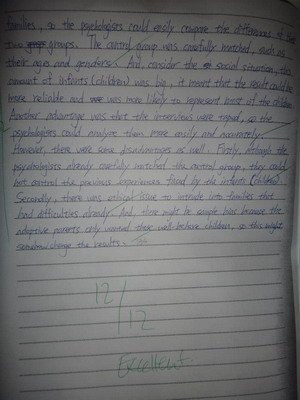 families, so the psychologists could easily compare the differences of these
two groups. The control group was carefully matched, such as
their ages and genders. And, consider the social situation, the
amount of infants (children) was big, it meant that the result could be
more reliable and was more likely to represent most of the children.
Another advantage was that the interviews were taped, so the
psychologists could analyse them more easily and accurately.
However, there were some disadvantages as well. Firstly, although the
psychologists already carefully matched the control group, they could
not control the previous experiences faced by the infants (children).
Secondly, there was ethical issue to intrude into families that
had difficulties already. And, there might be sample bias because the
adoptive parents only wanted those well-behave children, so this might
somehow change the results.
12/12
Excellent